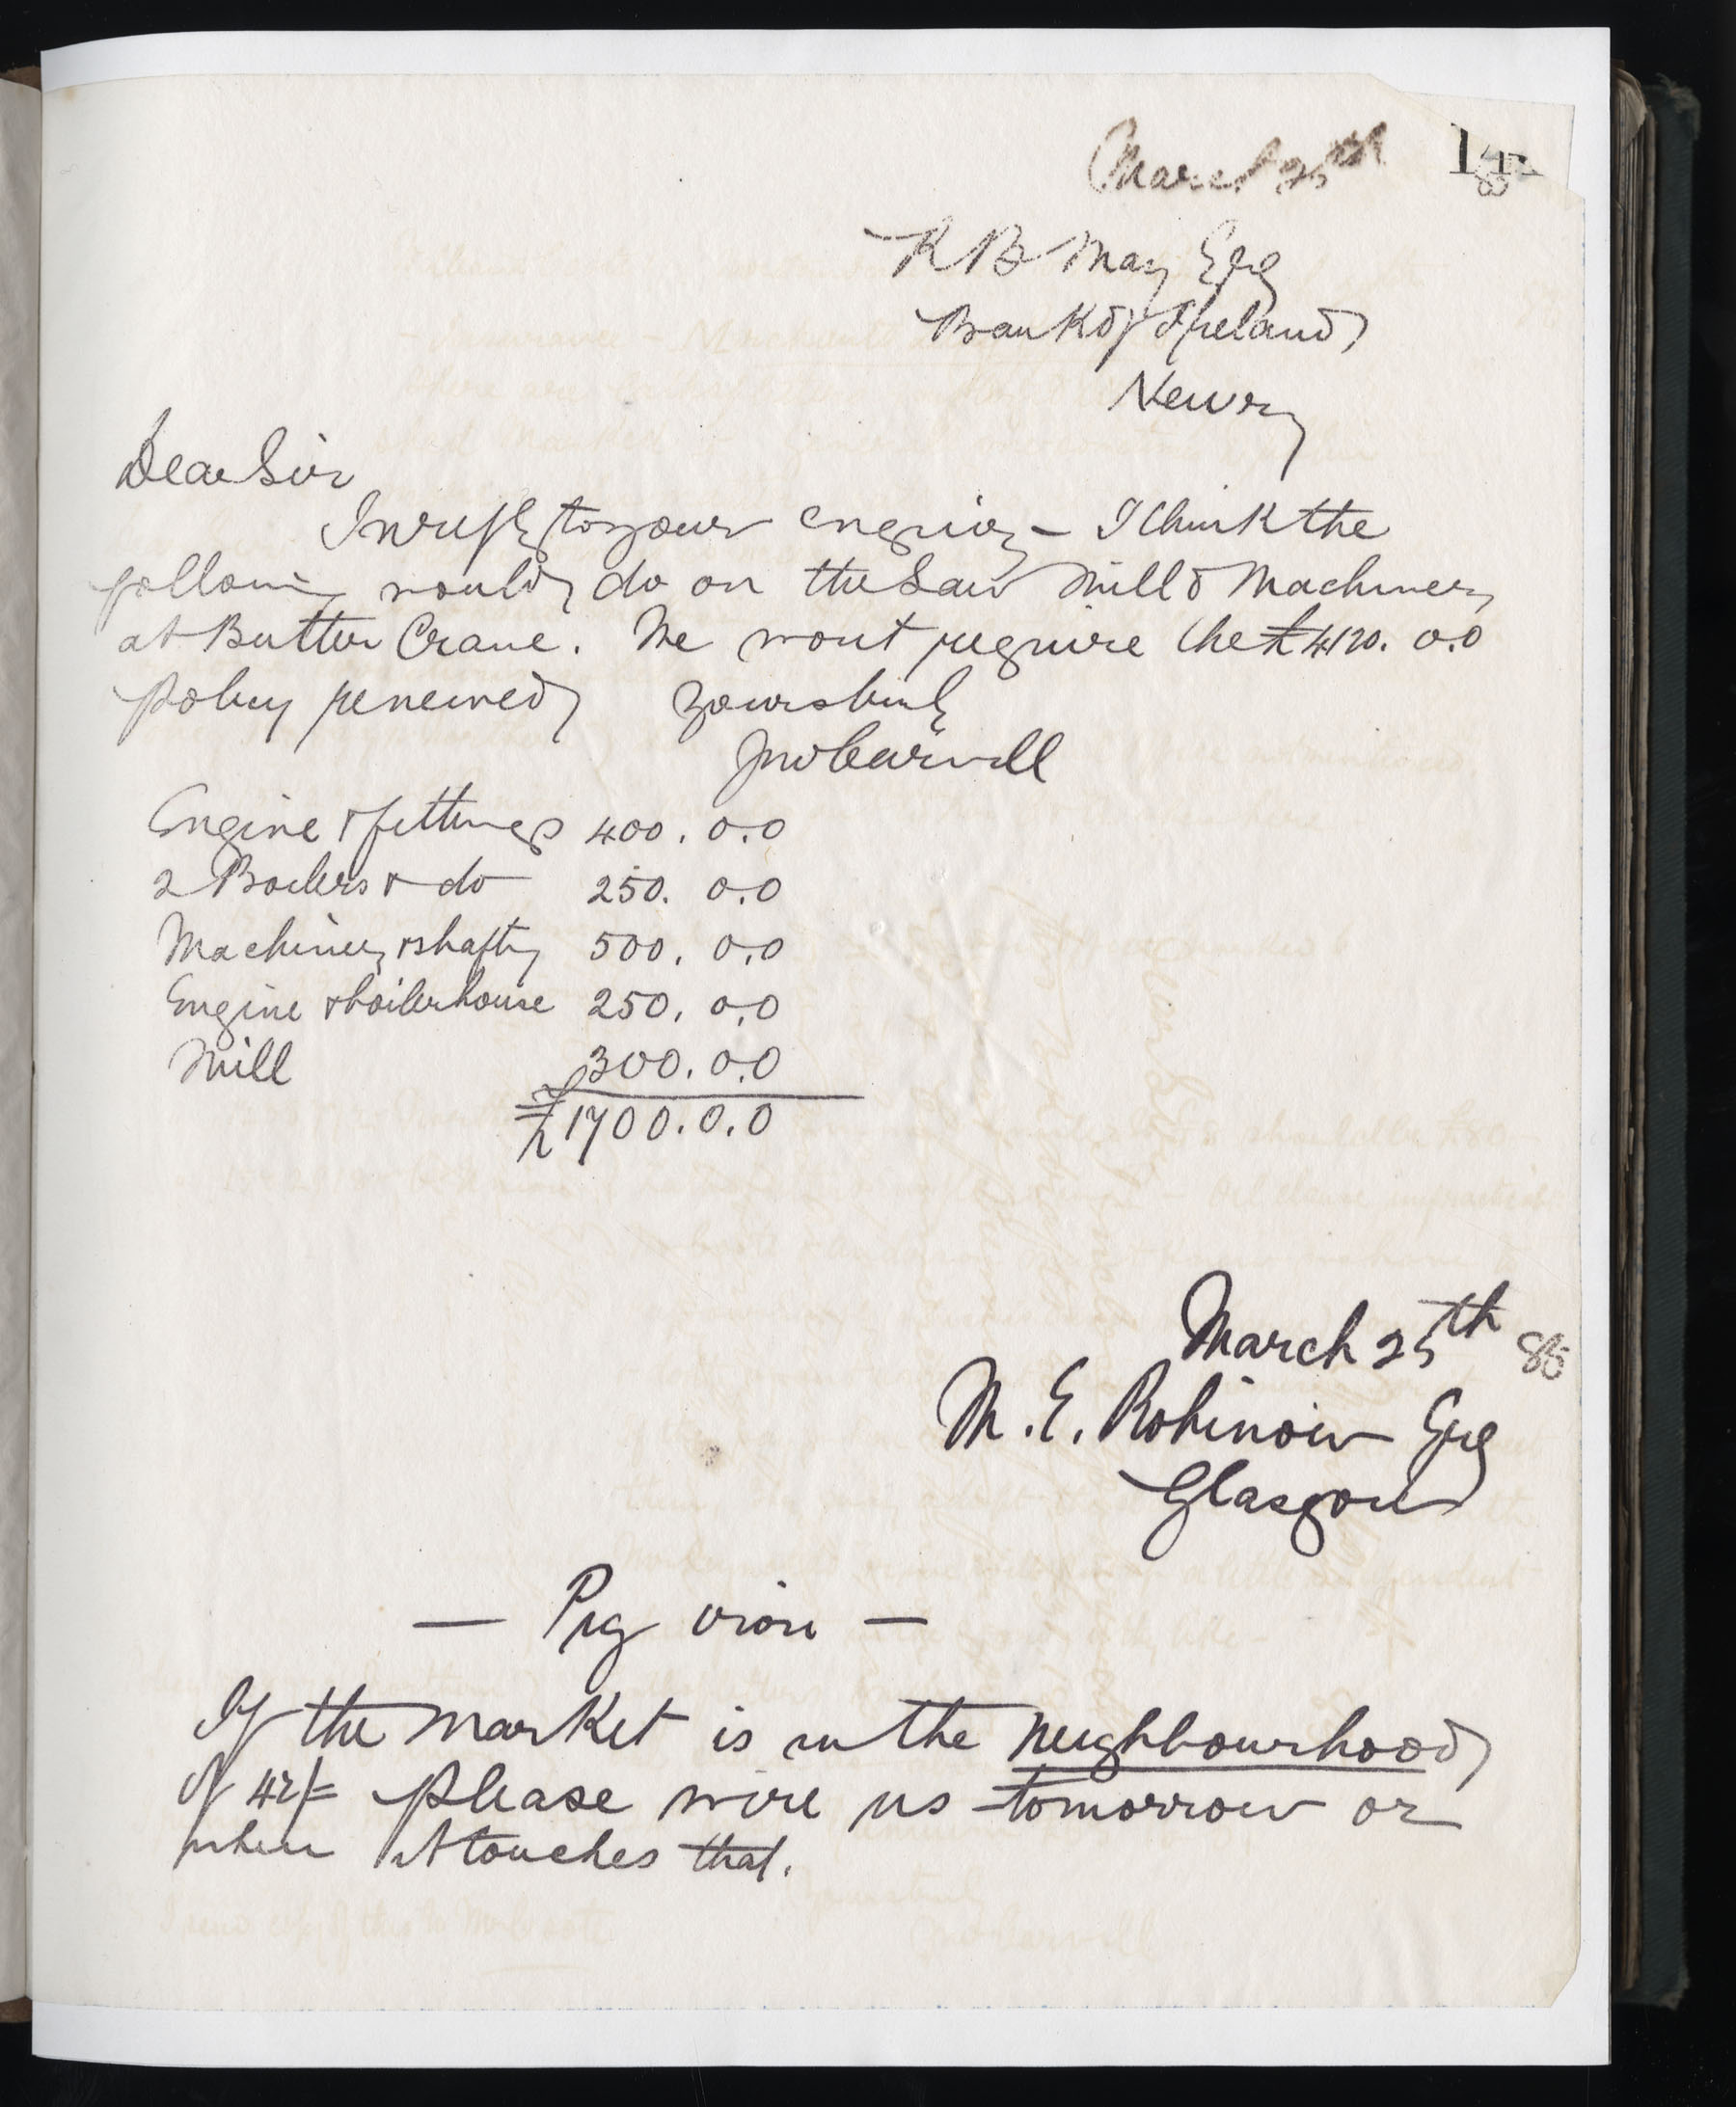 March 25th
R B May Esq
Bank of Ireland
Newry
Dear Sir
In reply to your enquiry - I think the
following would do on the Saw Mill & Machinery
at Butter Crane. We wont require the £420. 0.0
policy renewed Yours truly
Jno Carvill
Engine & fittings 400. 0.0
2 Boilers & do 250. 0.0
Machinery & shafting 500. 0.0
Engine & boilerhouse 250. 0.0
Mill 300. 0.0
£1700. 0. 0
March 25th 85
M. E. Robinow Esq
Glasgow
— Pig iron —
If the market is in the neighbourhood
of 42/= please wire us tomorrow or
when it touches that.